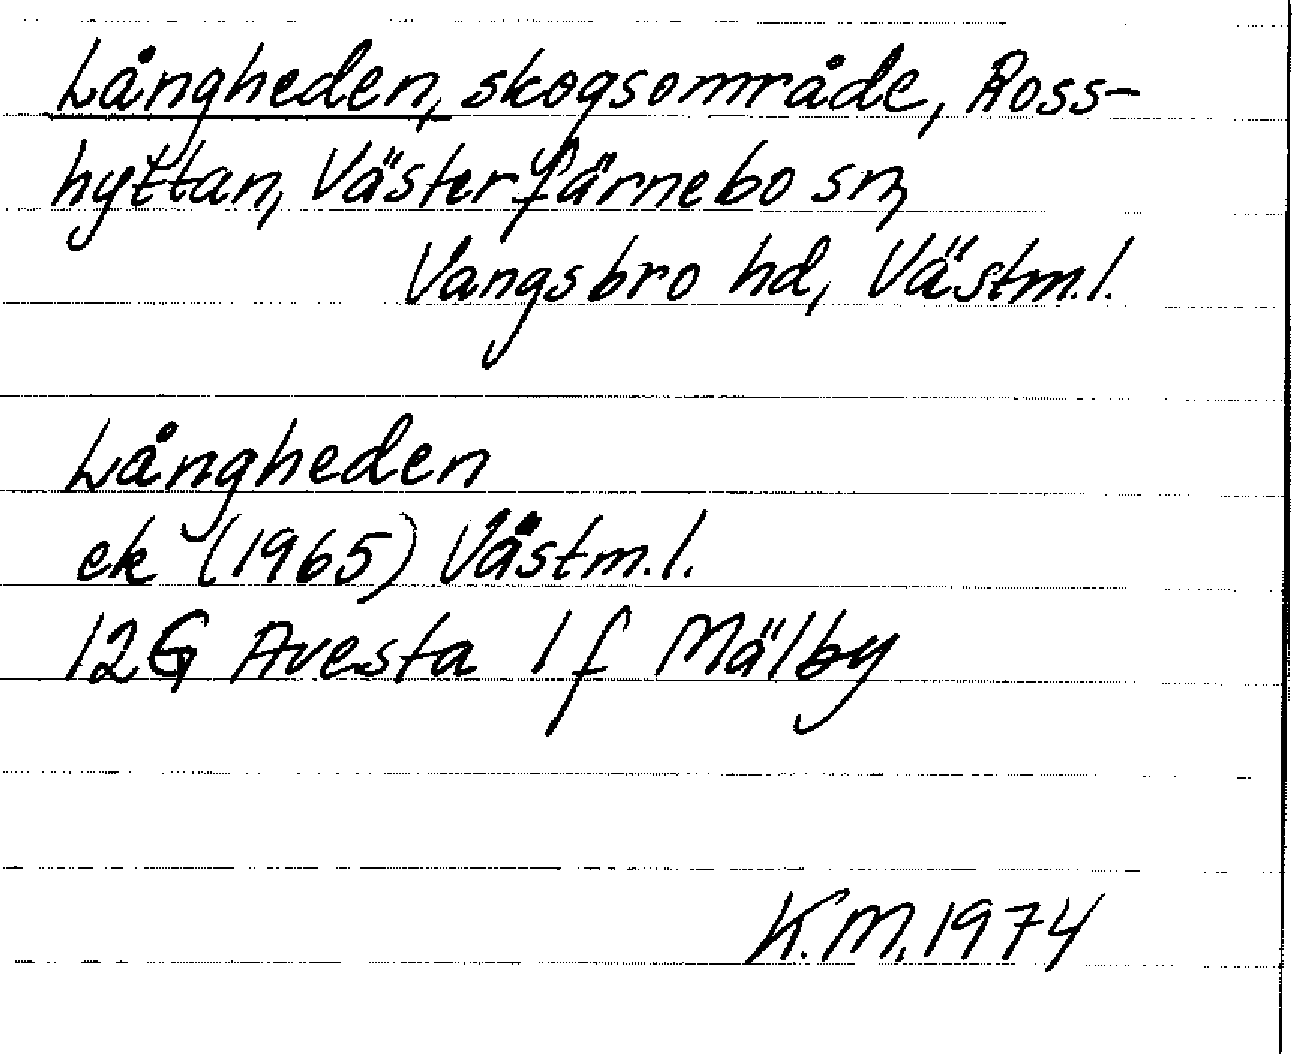 Långheden, skogsområde, Ross-
hyttan, Västerfärnebo sn,
Vangsbro hd, Västm.l.
Långheden
ek (1965) Västm.l.
12G Avesta 1 f Mälby
K.M. 1974